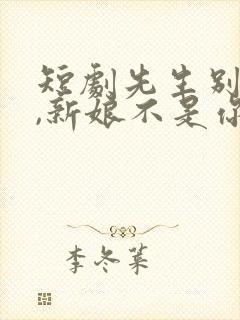 短劇先生别
,新娘不是你
李冬菜